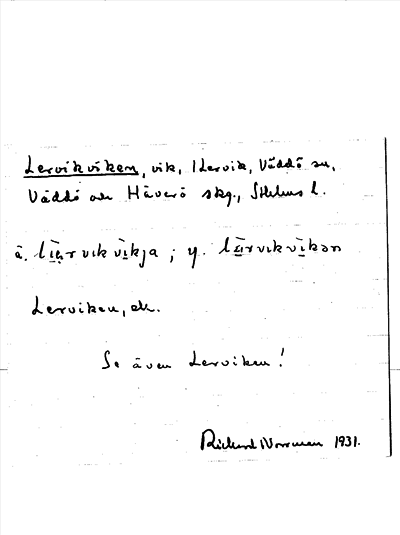 Lervikviken, vik, i Lervik, Väddö sn,
Väddö och Häverö skg., Sthlms l.
ä. lìervikvìkja ; y. lærvikvìkən
Lerviken, ek.
Se även Lerviken!
Richard Norrman 1931.